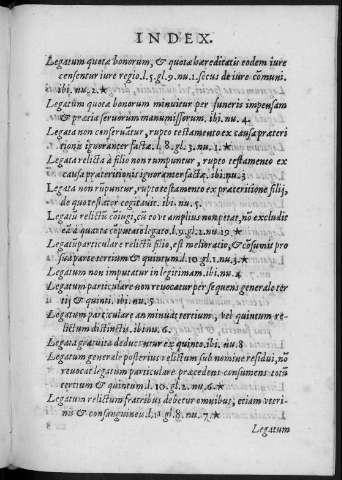 INDEX.
Legatum quotæ bonorum, & quotæ hæreditatis eodem iure
censentur iure regio.l.5.gl.9.nu.1.secus de iure cōmuni.
ibi.nu.2.★
Legatum quotæ bonorum minuitur per funeris impensam
& præcia seruorum manumissorum. ibi.nu.4.
Legata non conseruãtur, rupto testamento ex causa præteri
tionis ignoranter factæ. l.8.gl.3.nu.1.★
Legata relicta à filio non rumpuntur, rupto testamento ex
causa præteritionis ignoranter factæ. ibi.nu.3
Legata non rūpuntur, rupto testamento ex præteritione filij,
de quo testator cogitauit. ibi.nu.5.
Legatū relictū cōiugi, cū eo ve amplius non petat, nō excludit
eā à quarta cōputari legato.l.9.gl.2.nu.19.★
Legatū particulare relictū filio, est melioratio, & cōsumit pro
sua parte tertium & quintum.l.10.gl.1.nu.3.★
Legatum non imputatur in legitimam.ibi.nu.4.
Legatum particulare non reuocatur per sequens generale ter
tij & quinti. ibi.nu.5
Legatum particulare an minuat tertium, vel quintum re-
lictum distinctis. ibi nu.6.
Legata gratuita deducuntur ex quinto. ibi.nu.8
Legatum generale posterius relictum sub nomine residui, nō
reuocat legatum particulare præcedens consumens totū
tertium & quintum.l.10.gl.2.nu.6.★
Legatum relictum fratribus debetur omnibus, etiam vteri-
nis & consanguineis.l.11.gl.8.nu.7.★
Legatum